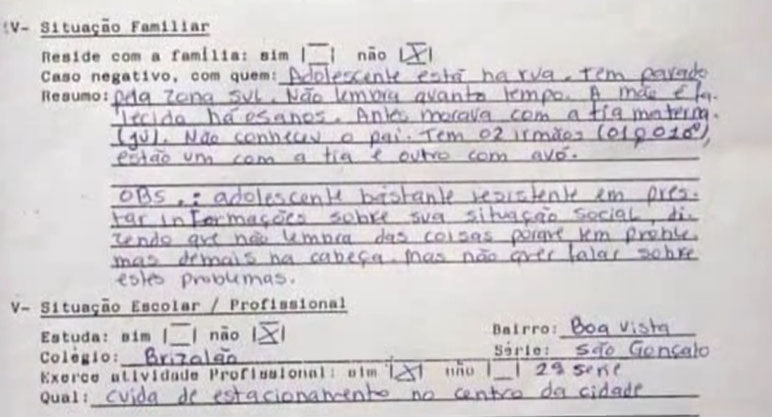 IV- Situação Familiar
Reside com a família: sim |__| não |X|
Caso negativo, com quem: Adolescente está na rua. Tem parado
Resumo: pela zona sul. Não lembra quanto tempo. A mãe é fa-
lecida há 05 anos. Antes morava com a tia materna.
(Jú). Não conheceu o pai. Tem 02 irmãos
estão um com a tia e outro com avó.
OBS.: adolescente bastante resistente em pres-
tar informações sobre sua situação social, di-
zendo que não lembra das coisas porque tem proble-
mas demais na cabeça. Mas não quer falar sobre
estes problemas.
V- Situação Escolar / Profissional
Estuda: sim |__| não |X| Bairro: Boa Vista
Colégio: Brizolão Série: São Gonçalo
Exerce atividade Profissional: sim |X| não |__| 2ª série
Qual: cuida de estacionamento no centro da cidade